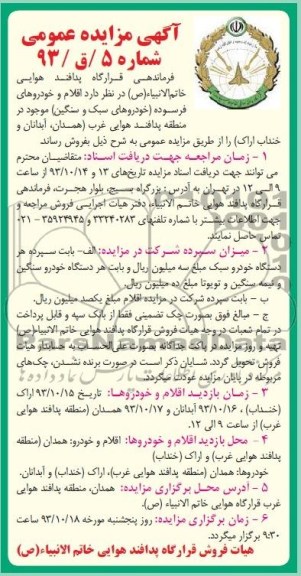 آگهی مزایده عمومی
شماره ۵ /ق /۹۳
فرماندهی قرارگاه پدافند هوایی
خاتم‌الانبیاء(ص) در نظر دارد اقلام و خودروهای
فرسوده (خودروهای سبک و سنگین) موجود در
منطقه پدافند هوایی غرب (همدان، آبدانان و
خنداب اراک) را از طریق مزایده عمومی به شرح ذیل بفروش رساند.
۱ - زمان مراجعه جهت دریافت اسناد: متقاضیان محترم
می توانند جهت دریافت اسناد مزایده تاریخ‌های ۱۳ و ۹۳/۱۰/۱۴ از ساعت
۹ الی ۱۲ در تهران به آدرس: بزرگراه بسیج، بلوار هجرت، فرماندهی
قرارگاه پدافند هوایی خاتم الانبیاء، دفتر هیات اجرایی فروش مراجعه و
جهت اطلاعات بیشتر با شماره تلفنهای ۳۳۲۴۰۲۸۳ و ۳۵۹۲۴۹۴۵ - ۰۲۱
تماس حاصل نمایند.
۲ - میزان سپرده شرکت در مزایده: الف- بابت سپرده هر
دستگاه خودرو سبک مبلغ سه میلیون ریال و بابت هر دستگاه خودرو سنگین
و نیمه سنگین و تویوتا مبلغ ده میلیون ریال.
ب - بابت سپرده شرکت در مزایده اقلام مبلغ یکصد میلیون ریال.
ج - مبالغ فوق بصورت چک تضمینی فقط از بانک سپه و قابل پرداخت
در تمام شعبات در وجه هیات فروش قرارگاه پدافند هوایی خاتم الانبیاء(ص)
تهیه و روز مزایده در پاکت جداگانه بصورت علی‌الحساب به حسابدار هیات
فروش تحویل گردد. شایان ذکر است در صورت برنده نشدن، چک‌های
مربوطه در پایان مزایده عودت میگردد.
۳ - زمان بازدید اقلام و خودروها: تاریخ ۹۳/۱۰/۱۵ اراک
(خنداب) ، ۹۳/۱۰/۱۶ آبدانان و ۹۳/۱۰/۱۷ همدان (منطقه پدافند هوایی
غرب) از ساعت ۹ الی ۱۲.
۴ - محل بازدید اقلام و خودروها: اقلام و خودرو: همدان (منطقه
پدافند هوایی غرب) و اراک (خنداب)
خودروها: همدان (منطقه پدافند هوایی غرب)، اراک (خنداب) و آبدانان.
۵ - آدرس محل برگزاری مزایده: همدان، منطقه پدافند هوایی
غرب قرارگاه هوایی خاتم الانبیاء (ص).
۶ - زمان برگزاری مزایده: روز پنجشنبه مورخه ۹۳/۱۰/۱۸ ساعت
۹:۳۰ برگزار میگردد.
هیات فروش قرارگاه پدافند هوایی خاتم الانبیاء(ص)